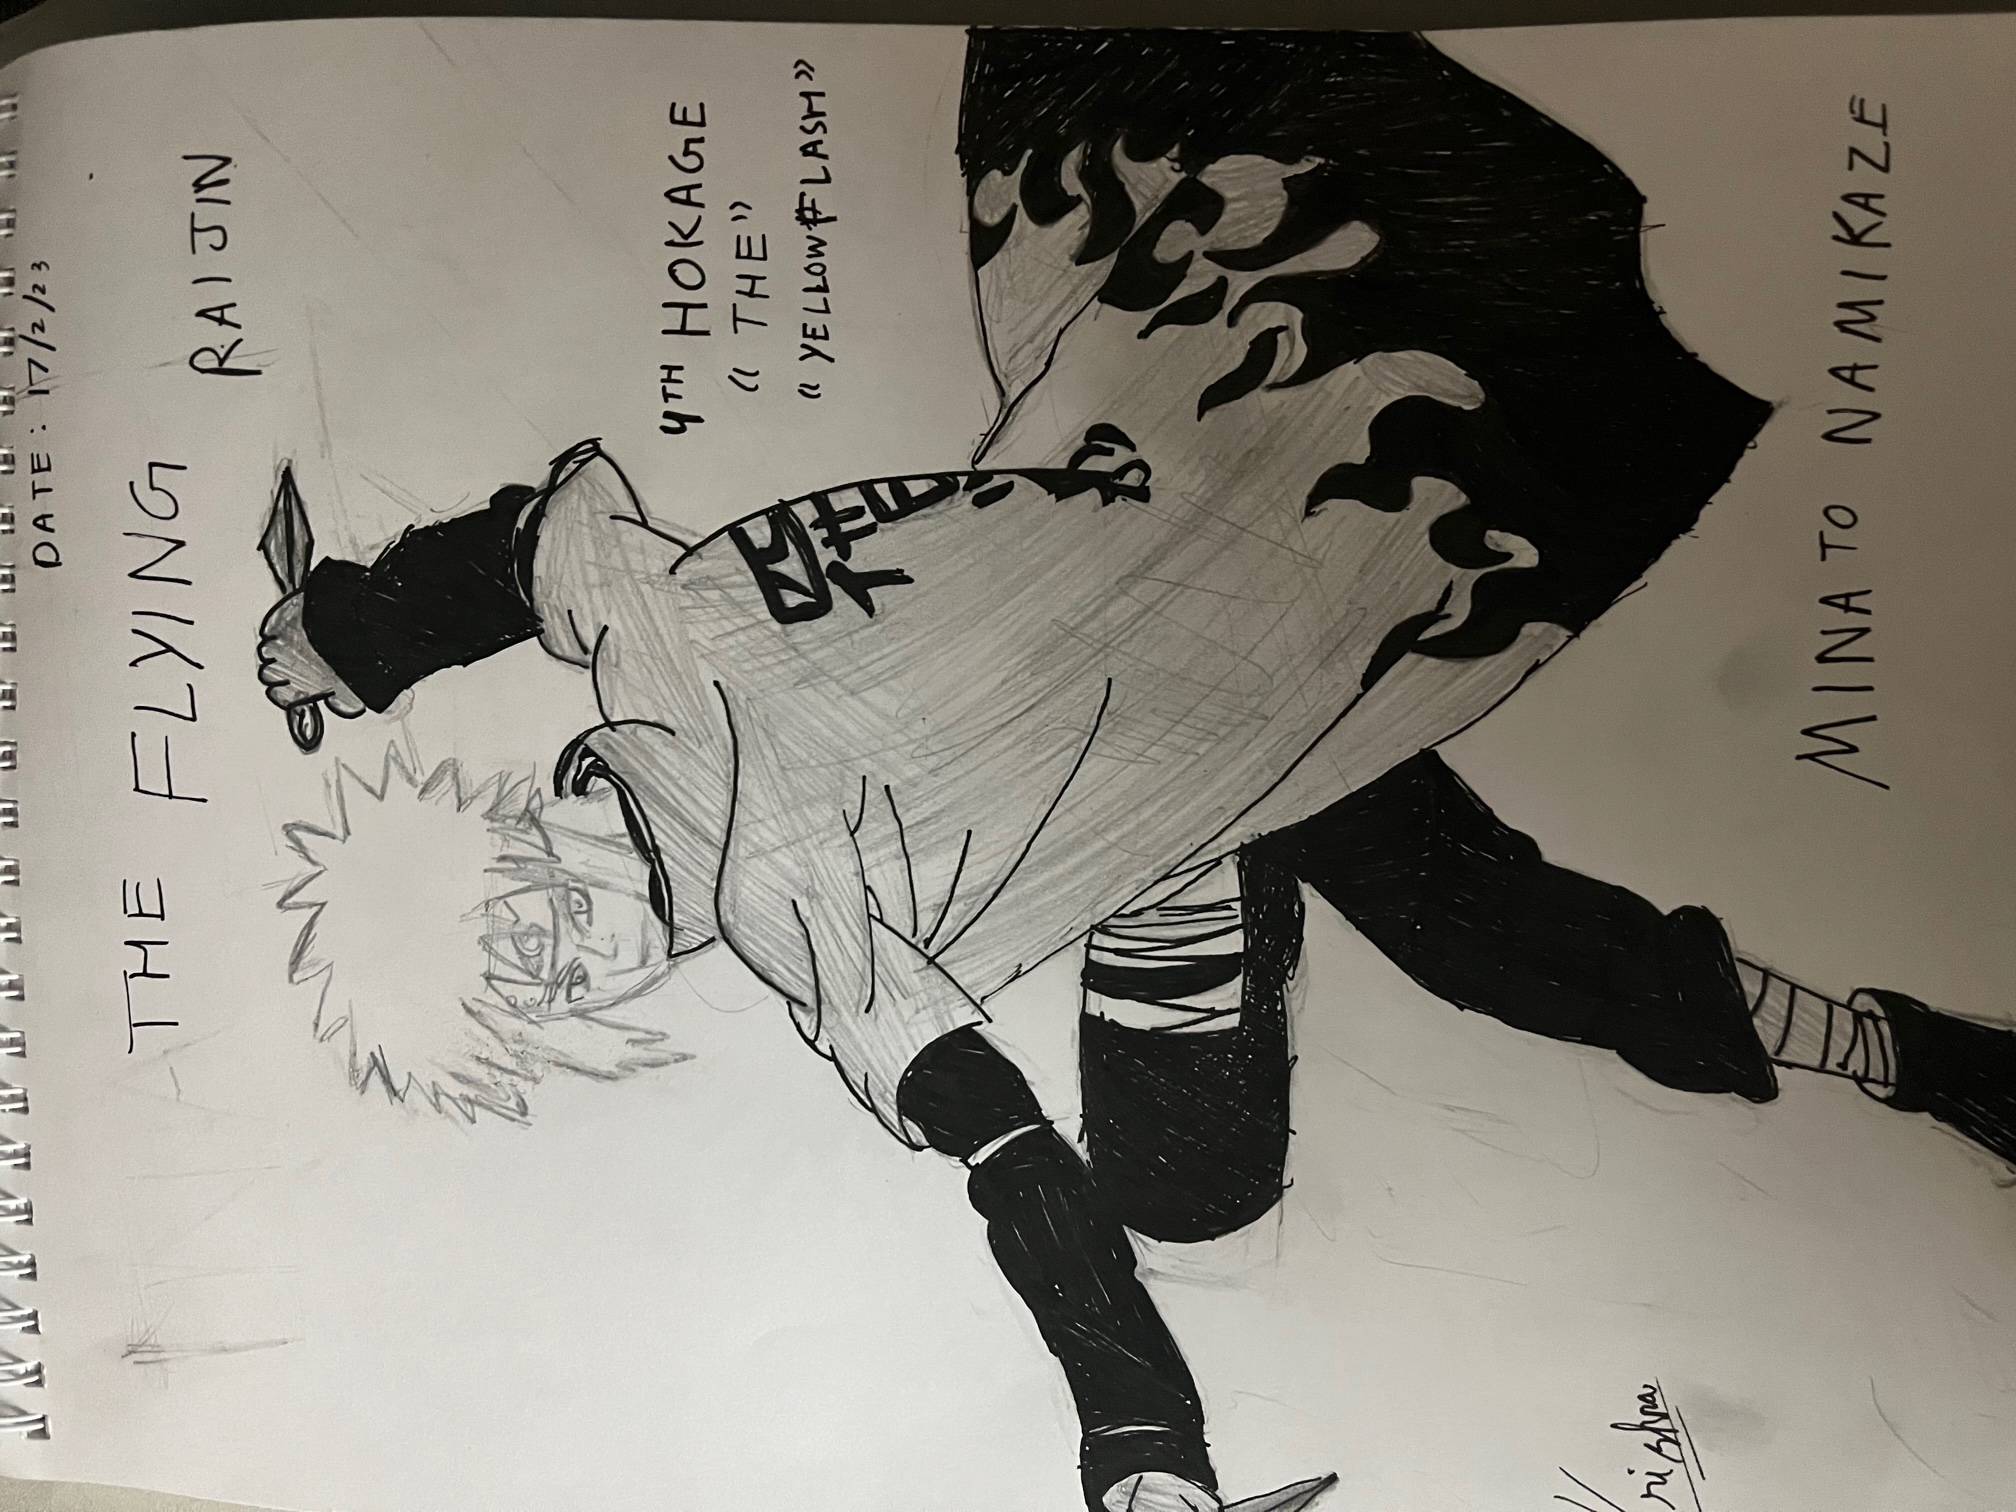 DATE: 17/2/23
THE FLYING
RAIJIN
4TH HOKAGE
"THE"
"YELLOW FLASH"
Krishna
MINATO NAMIKAZE